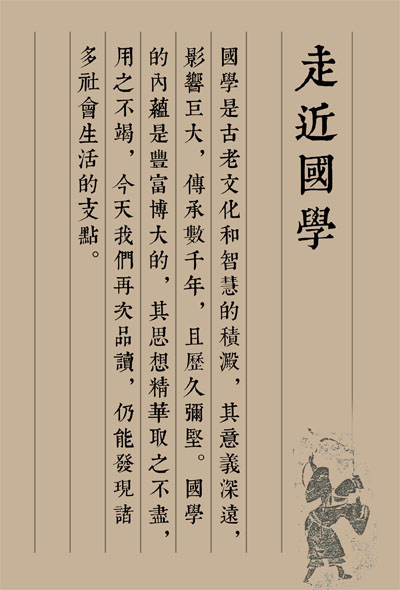 走近國學
國學是古老文化和智慧的積澱，其意義深遠，
影響巨大，傳承數千年，且歷久彌堅。國學
的內蘊是豐富博大的，其思想精華取之不盡，
用之不竭，今天我們再次品讀，仍能發現諸
多社會生活的支點。